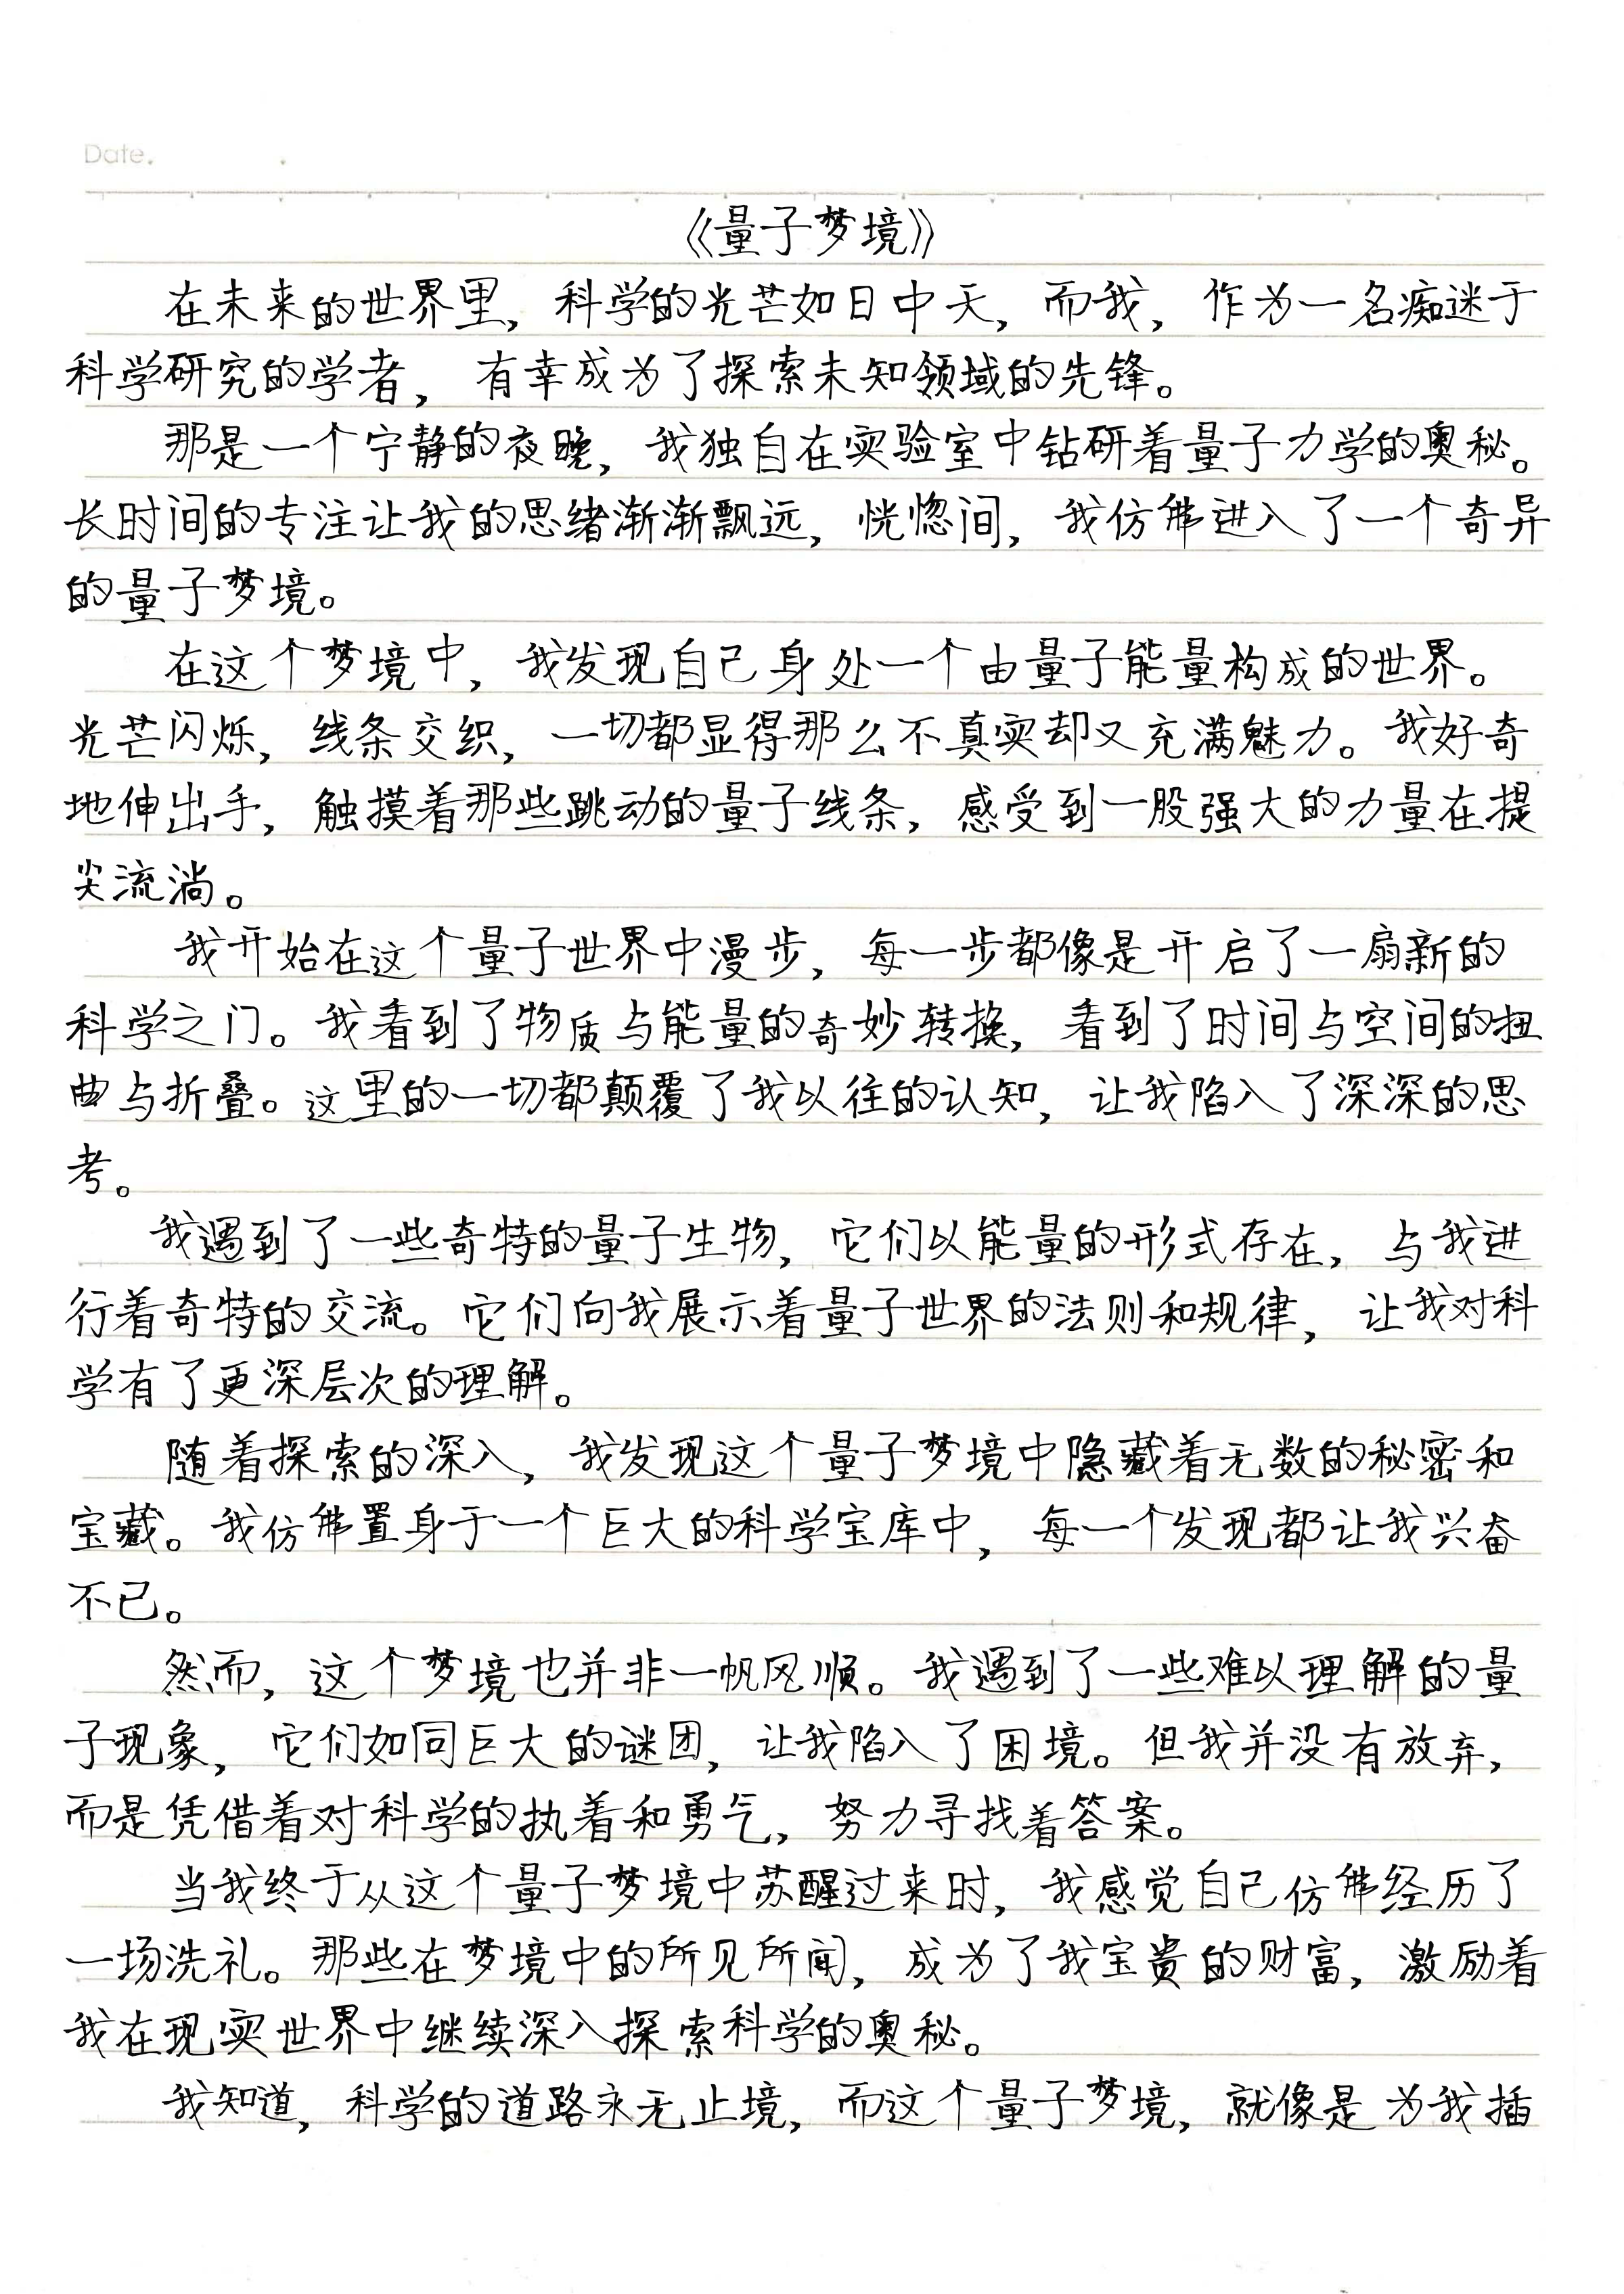 Date.
《量子梦境》
在未来的世界里，科学的光芒如日中天，而我，作为一名痴迷于
科学研究的学者，有幸成为了探索未知领域的先锋。
那是一个宁静的夜晚，我独自在实验室中钻研着量子力学的奥秘。
长时间的专注让我的思绪渐渐飘远，恍惚间，我仿佛进入了一个奇异
的量子梦境。
在这个梦境中，我发现自己身处一个由量子能量构成的世界。
光芒闪烁，线条交织，一切都显得那么不真实却又充满魅力。我好奇
地伸出手，触摸着那些跳动的量子线条，感受到一股强大的力量在提
尖流淌。
我开始在这个量子世界中漫步，每一步都像是开启了一扇新的
科学之门。我看到了物质与能量的奇妙转换，看到了时间与空间的扭
曲与折叠。这里的一切都颠覆了我以往的认知，让我陷入了深深的思
考。
我遇到了一些奇特的量子生物，它们以能量的形式存在，与我进
行着奇特的交流。它们向我展示着量子世界的法则和规律，让我对科
学有了更深层次的理解。
随着探索的深入，我发现这个量子梦境中隐藏着无数的秘密和
宝藏。我仿佛置身于一个巨大的科学宝库中，每一个发现都让我兴奋
不已。
然而，这个梦境也并非一帆风顺。我遇到了一些难以理解的量
子现象，它们如同巨大的谜团，让我陷入了困境。但我并没有放弃，
而是凭借着对科学的执着和勇气，努力寻找着答案。
当我终于从这个量子梦境中苏醒过来时，我感觉自己仿佛经历了
一场洗礼。那些在梦境中的所见所闻，成为了我宝贵的财富，激励着
我在现实世界中继续深入探索科学的奥秘。
我知道，科学的道路永无止境，而这个量子梦境，就像是为我插